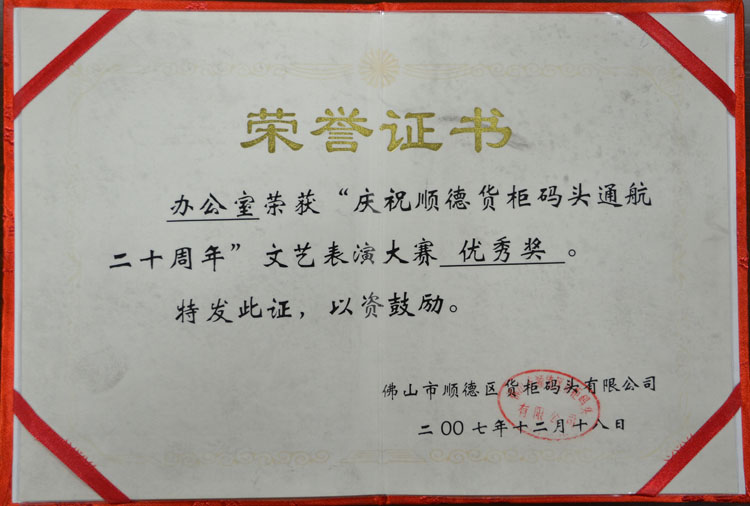 荣誉证书
办公室荣获“庆祝顺德货柜码头通航
二十周年”文艺表演大赛 优秀奖 。
特发此证，以资鼓励。
佛山市顺德区货柜码头有限公司
有限公司
二〇〇七年十二月十八日